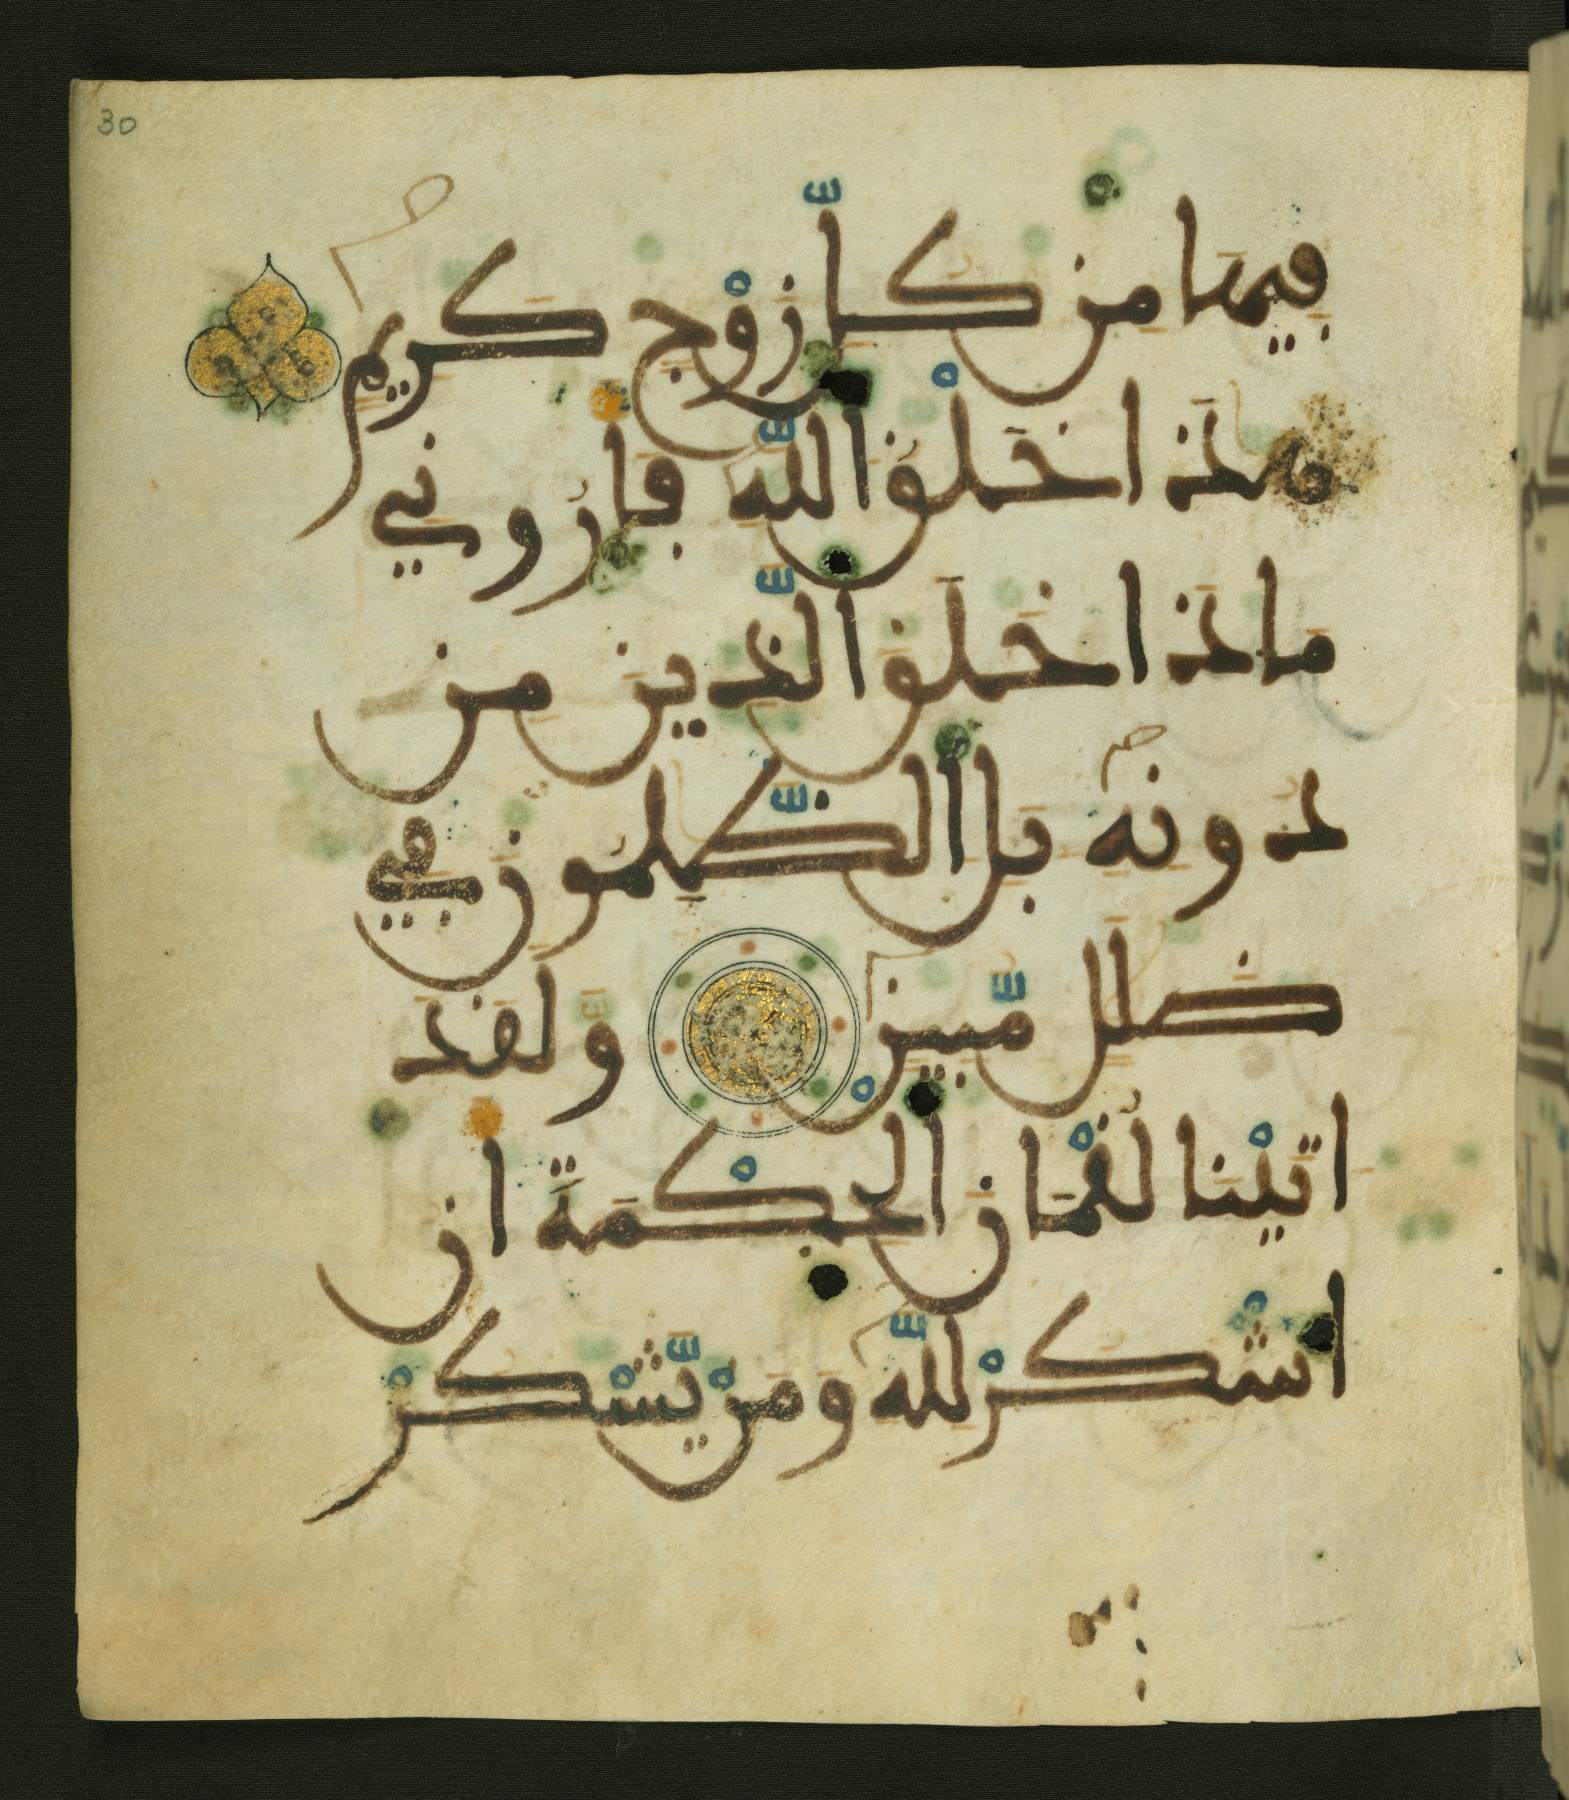 30
فيها من كل زوج كريم
هذا خلق الله فأروني
ماذا خلق الذين من
دونه بل الظلمون في
ضلل مّبين ولقد
اتينا لقمان الحكمة ان
اشكر لله ومن يّشكر